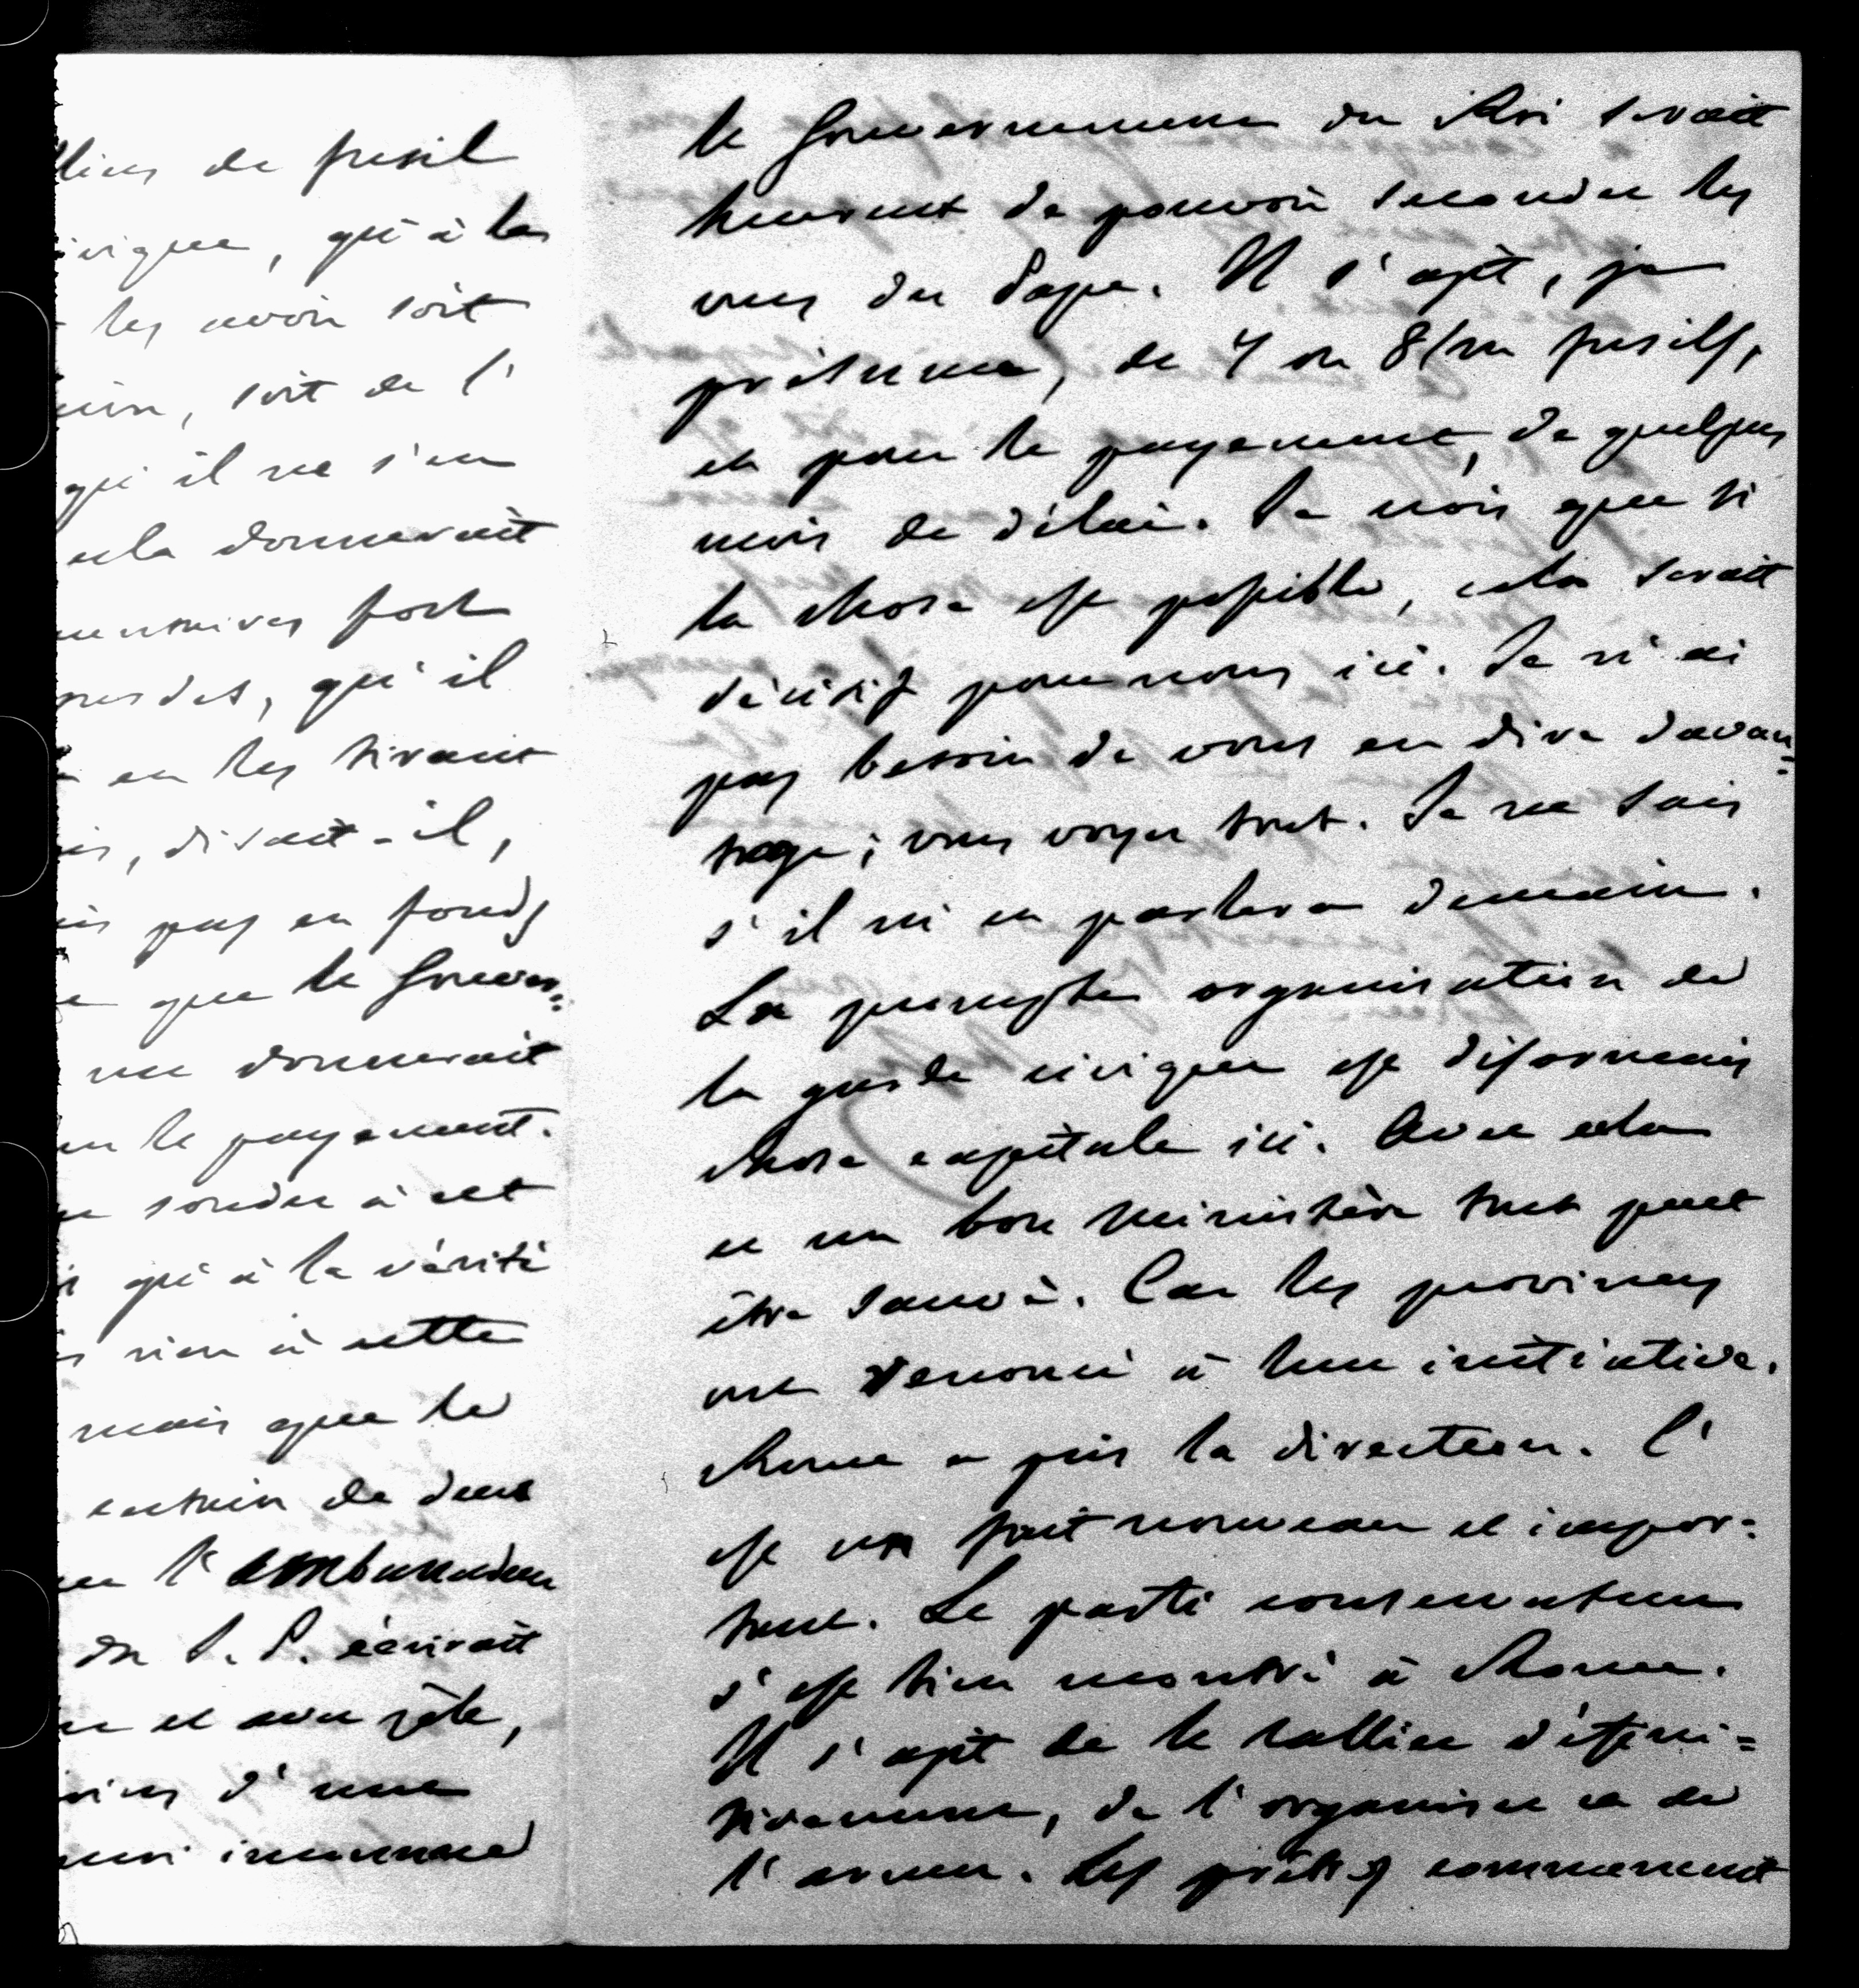 de fusil
qu'à les
les avoir soit
soit de l'
qu'il ne s'en
cela donnerait
fort
qu'il
en les tirant
disait-il,
pas en fonds
que le Gouver=
me donnerait
le payement.
sonder à cet
qu'à la vérité
rien à cette
mais que le
de deux
l'ambassadeur
du S. P. écrivait
et avec zèle,
d'une
immense
le Gouvernement du Roi serait
heureux de pouvoir seconder les
vues du Pape. Il s'agit, je
présume, de 7 ou 8/m fusils,
et pour le payement, de quelques
mois de délai. Je crois que si
la chose est possible, cela serait
décisif pour nous ici. Je n'ai
pas besoin de vous en dire davan=
tage; vous voyez tout. Je ne sais
s'il m'en parlera demain.
La prompte organisation de
la garde civique est désormais
chose capitale ici. Avec cela
et un bon ministère tout peut
être sauvé. Car les provinces
ont renoncé à leur initiative.
Rome a pris la direction. C'
est un fait nouveau et impor=
tant. Le parti conservateur
s'est bien montré à Rome.
Il s'agit de le rallier défini=
tivement, de l'organiser et de
l'armer. Les prêtres commencent